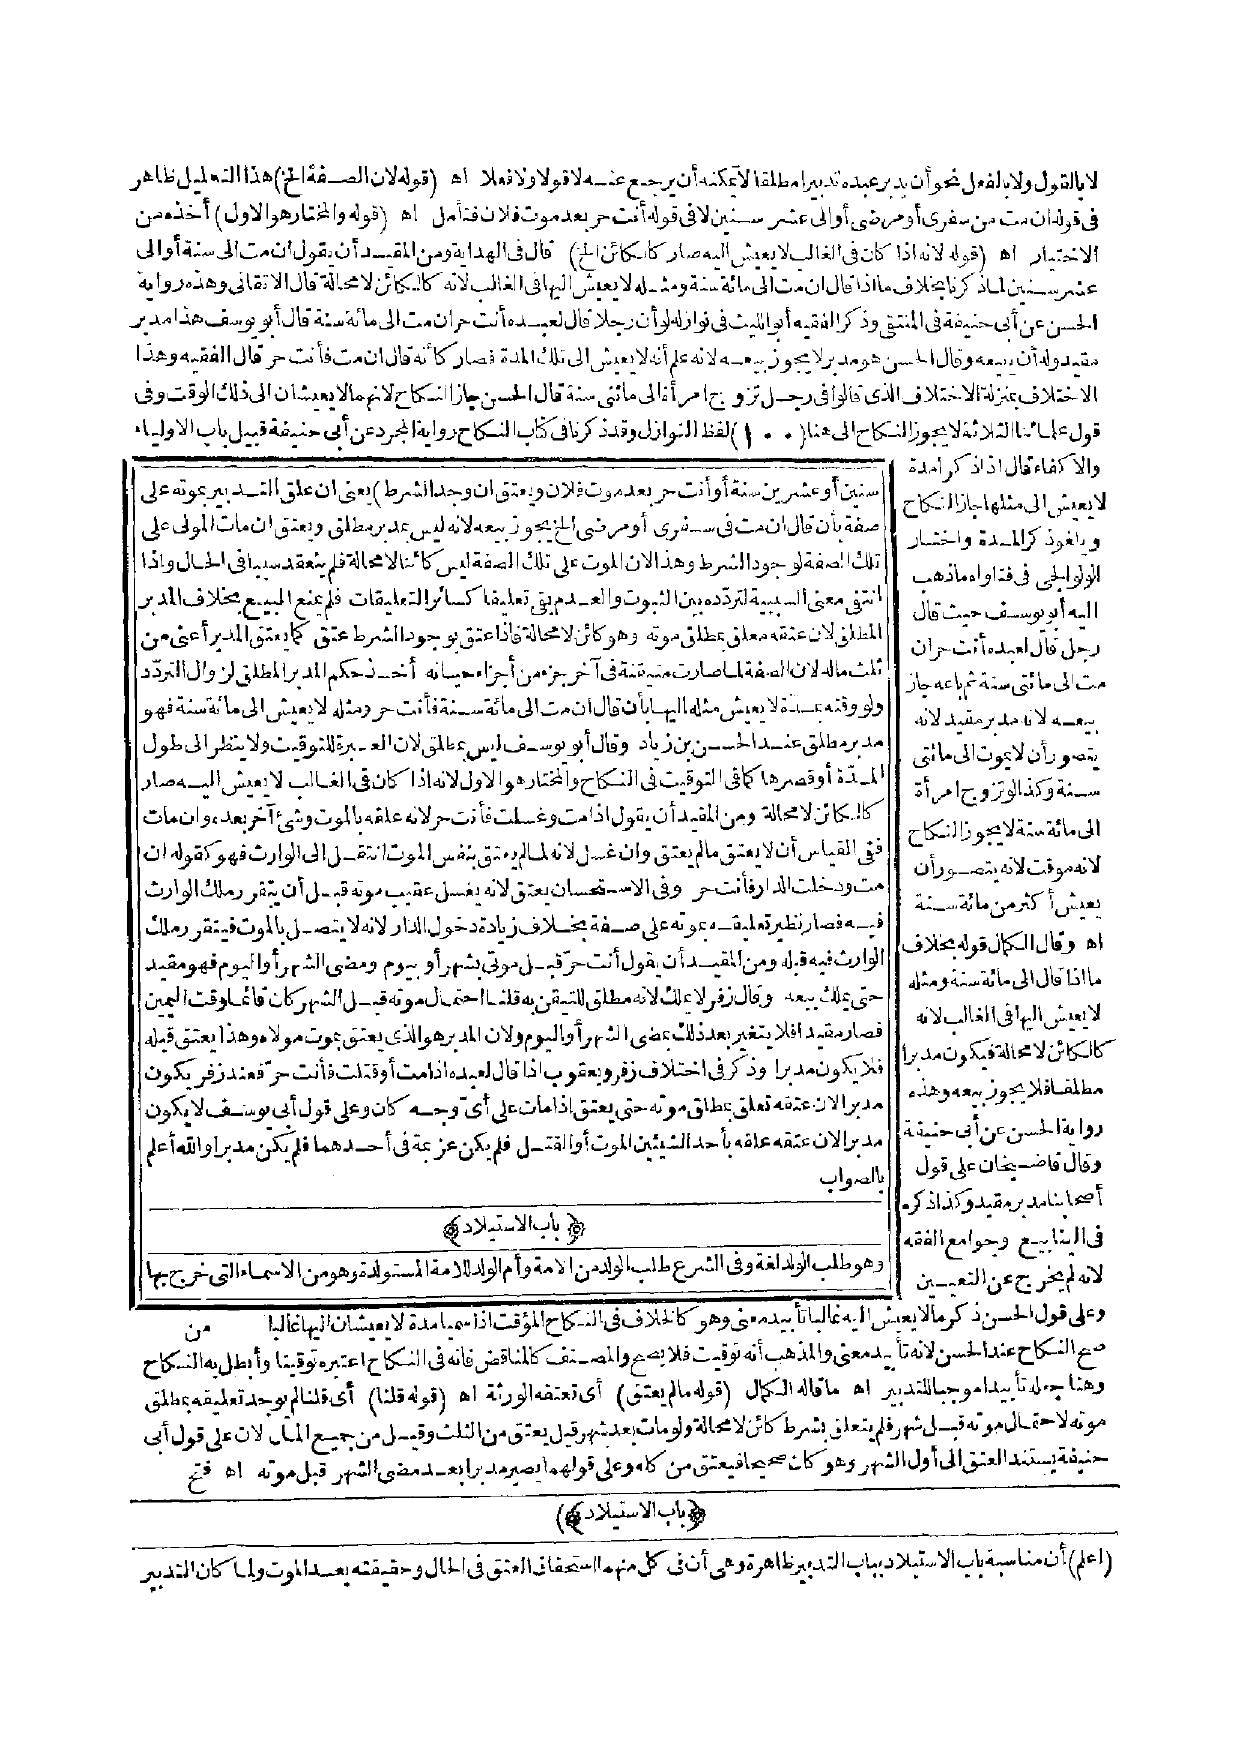 لا بالقول ولا بالفعل نحو أن يدبر عبده تدبيرا مطلقا لا يمكنه أن يرجع عنه لا قولا ولا فعلا اه (قوله لان الصفة الخ) هذا التعليل ظاهر
فى قوله ان مت من سفرى أو مرضى أو الى عشر سنين لا فى قوله أنت حر بعد موت فلان فتأمل اه (قوله والمختار هو الاول) أخذه من
الاختيار اه (قوله لانه اذا كان فى الغالب لا يعيش اليه صار كالكائن الخ) قال فى الهداية ومن المقيد أن يقول ان مت الى سنة أو الى
عشر سنين لما ذكرنا بخلاف ما اذا قال ان مت الى مائة سنة ومثله لا يعيش اليها فى الغالب لانه كالكائن لا محالة قال الاتقانى وهذه رواية
الحسن عن أبى حنيفة فى المنتقى وذكر الفقيه أبو الليث فى نوازله لو أن رجلا قال لعبده أنت حر ان مت الى مائة سنة قال أبو يوسف هذا مدبر
مقيد وله أن يبيعه وقال الحسن هو مدبر لا يجوز بيعه لانه علم أنه لا يعيش الى تلك المدة فصار كأنه قال ان مت فأنت حر قال الفقيه وهذا
الاختلاف بمنزلة الاختلاف الذى قالوا فى رجل تزوج امرأة الى مائتى سنة قال الحسن جاز النكاح لانهما لا يعيشان الى ذلك الوقت وفى
قول علمائنا الثلاثة لا يجوز النكاح الى هنا (١٠٠) لفظ النوازل وقد ذكرنا فى كتاب النكاح رواية المجرد عن أبى حنيفة قبيل باب الاولياء
والاكفاء قال اذا ذكرا مدة
لا يعيش الى مثلها جاز النكاح
ويلغو ذكر المدة واختار
الولوالجى فى فتاواه ما ذهب
اليه أبو يوسف حيث قال
رجل قال لعبده أنت حر ان
مت الى مائتى سنة ثم باعه جاز
بيعه لانه مدبر مقيد لانه
يتصور أن لا يموت الى مائتى
سنة وكذا لو تزوج امرأة
الى مائة سنة لا يجوز النكاح
لانه موقت لانه يتصور أن
يعيش أكثر من مائة سنة
اه وقال الكمال قوله بخلاف
ما اذا قال الى مائة سنة ومثله
لا يعيش اليها فى الغالب لانه
كالكائن لا محالة فيكون مدبرا
مطلقا فلا يجوز بيعه وهذه
رواية الحسن عن أبى حنيفة
وقال قاضيخان على قول
أصحابنا مدبر مقيد وكذا ذكره
فى الينابيع وجوامع الفقه
لانه لم يخرج عن التعيين
سنين أو عشرين سنة أو أنت حر بعد موت فلان ويعتق ان وجد الشرط) يعنى ان علق التدبير بموته على
صفة بأن قال ان مت فى سفرى أو مرضى الخ يجوز بيعه لانه ليس بمدبر مطلق ويعتق ان مات المولى على
تلك الصفة لوجود الشرط وهذا لان الموت على تلك الصفة ليس كائنا لا محالة فلم ينعقد سببا فى الحال واذا
انتفى معنى السببية لتردده بين الثبوت والعدم بقى تعليقا كسائر التعليقات فلم يمنع البيع بخلاف المدبر
المطلق لان عتقه معلق بمطلق موته وهو كائن لا محالة فاذا عتق بوجود الشرط عتق كما يعتق المدبر أعنى من
ثلث ماله لان الصفة لما صارت متيقنة فى آخر جزء من أجزاء حياته أخذ حكم المدبر المطلق لزوال التردد
ولو وقته بمدة لا يعيش مثله اليها بأن قال ان مت الى مائة سنة فأنت حر ومثله لا يعيش الى مائة سنة فهو
مدبر مطلق عند الحسن بن زياد وقال أبو يوسف ليس بمطلق لان العبرة للتوقيت ولا ينظر الى طول
المدة أو قصرها كما فى التوقيت فى النكاح والمختار هو الاول لانه اذا كان فى الغالب لا يعيش اليه صار
كالكائن لا محالة ومن المقيد أن يقول اذا مت وغسلت فأنت حر لانه علقه بالموت وشئ آخر بعده وان مات
ففى القياس أن لا يعتق ما لم يعتق وان غسل لانه لما لم يعتق بنفس الموت انتقل الى الوارث فهو كقوله ان
مت ودخلت الدار فأنت حر وفى الاستحسان يعتق لانه يغسل عقيب موته قبل أن يتقرر ملك الوارث
فيه فصار نظير تعليقه بموته على صفة بخلاف زيادة دخول الدار لانه لا يتصل بالموت فيتقرر ملك
الوارث فيه قبله ومن المقيد أن يقول أنت حر قبل موتى بشهر أو بيوم ومضى الشهر أو اليوم فهو مقيد
حتى يملك بيعه وقال زفر لا يملك لانه مطلق للتيقن به قلنا احتمال موته قبل الشهر كان قائما وقت اليمين
فصار مقيدا فلا يتغير بعد ذلك بمضى الشهر أو اليوم ولان المدبر هو الذى يعتق بموت مولاه وهذا يعتق قبله
فلا يكون مدبرا وذكر فى اختلاف زفر ويعقوب اذا قال لعبده اذا مت أو قتلت فأنت حر فعند زفر يكون
مدبرا لان عتقه تعلق بمطلق موته حتى يعتق اذا مات على أى وجه كان وعلى قول أبى يوسف لا يكون
مدبرا لان عتقه علقه بأحد الشيئين الموت أو القتل فلم يكن عزيمة فى أحدهما فلم يكن مدبرا والله أعلم
بالصواب
﴿باب الاستيلاد﴾
وهو طلب الولد لغة وفى الشرع طلب الولد من الامة وأم الولد للامة المستولدة وهو من الاسماء التى خرج بها
من
وعلى قول الحسن ذكر ما لا يعيش اليه غالبا تأبيد معنى وهو كالخلاف فى النكاح المؤقت اذا سميا مدة لا يعيشان اليها غالبا
صح النكاح عند الحسن لانه تأبيد معنى والمذهب أنه توقيت فلا يصح والمصنف كالمناقض فانه فى النكاح اعتبره توقيتا وأبطل به النكاح
وهنا جعله تأبيدا موجبا للتدبير اه ما قاله الكمال (قوله ما لم يعتق) أى تعتقه الورثة اه (قوله قلنا) أى قلنا لم يوجد تعليقه بمطلق
موته لاحتمال موته قبل شهر فلم يتعلق بشرط كائن لا محالة ولو مات بعد شهر قيل يعتق من الثلث وقيل من جميع المال لان على قول أبى
حنيفة يستند العتق الى أول الشهر وهو كان صحيحا فيعتق من كله وعلى قولهما يصير مدبرا بعد مضى الشهر قبل موته اه فتح
﴿باب الاستيلاد﴾)
(اعلم) أن مناسبة باب الاستيلاد بباب التدبير ظاهرة وهى أن فى كل منهما استحقاق العتق فى الحال وحقيقته بعد الموت ولما كان التدبير